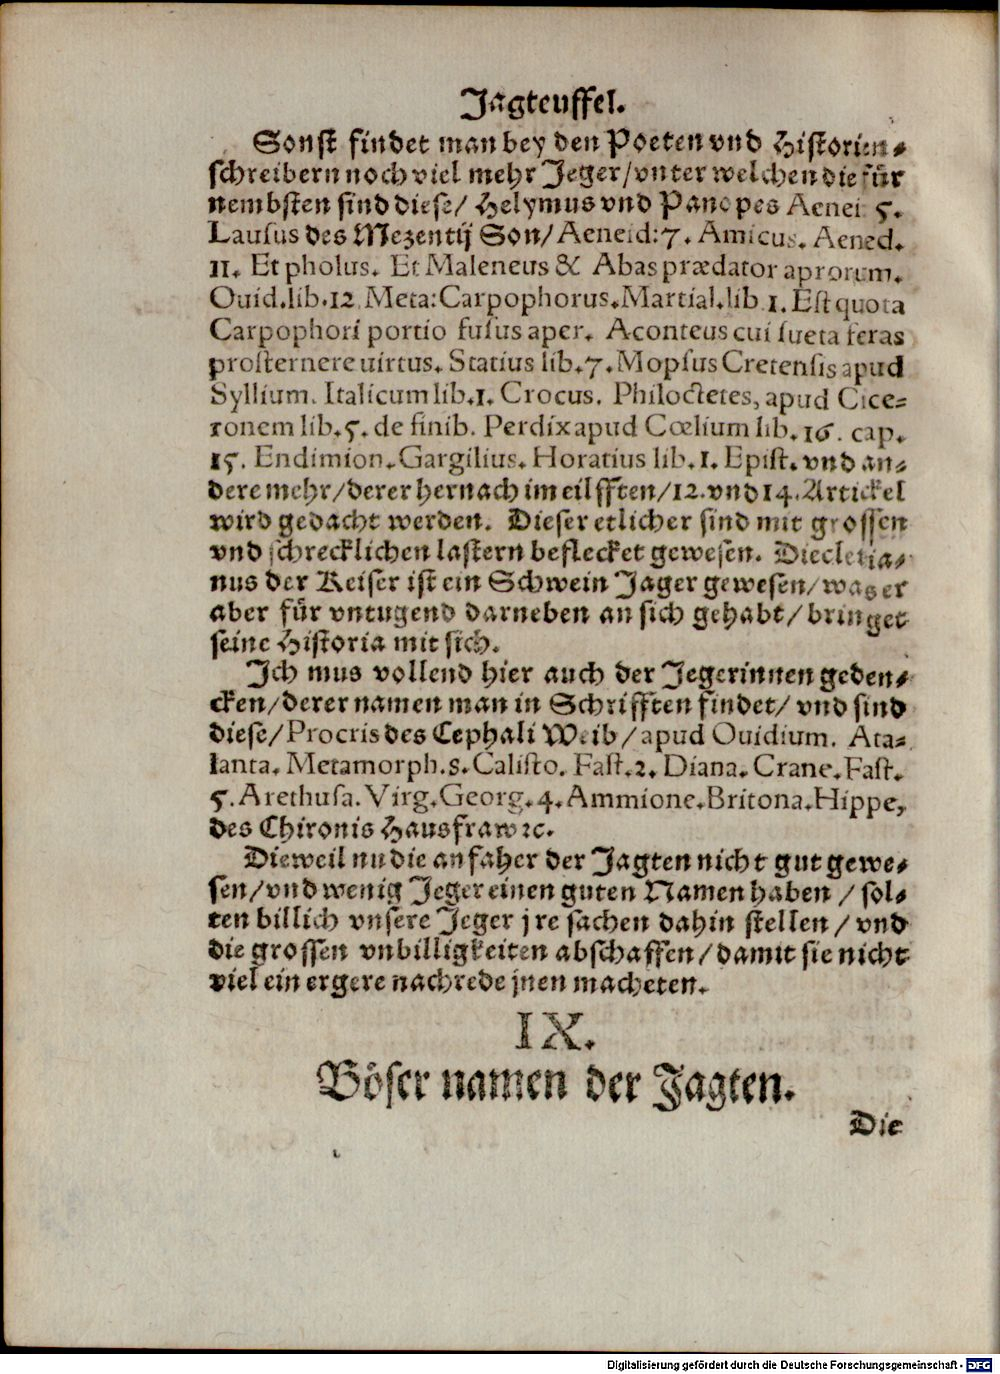 Jagteuffel.
Sonst findet man bey den Poeten vnd Historien⸗
schreibern noch viel mehr Jeger/vnter welchen die für
nembsten sind diese/ Helymus vnd Panopes Aenei: 5.
Lausus des Mezentij Son/Aeneid:7. Amicus. Aened.
11. Et pholus. Et Maleneus & Abas prædator aprorum.
Ouid.lib.12 Meta:Carpophorus.Martial.lib 1. Est quota
Carpophori portio fusus aper. Aconteus cui sueta feras
prosternere uirtus. Statius lib.7. Mopsus Cretensis apud
Syllium. Italicum lib.1. Crocus. Philoctetes, apud Cice⸗
ronem lib.5. de finib. Perdix apud Cœlium lib.16. cap.
15. Endimion.Gargilius. Horatius lib.1. Epist. vnd an⸗
dere mehr/derer hernach im eilfften/12.vnd 14.Artickel
wird gedacht werden. Dieser etlicher sind mit grossen
vnd schrecklichen lastern beflecket gewesen. Diecletia⸗
nus der Keiser ist ein Schwein Jager gewesen/was er
aber für vntugend darneben an sich gehabt/bringet
seine Historia mit sich.
Ich mus vollend hier auch der Jegerinnen geden⸗
cken/derer namen man in Schrifften findet/ vnd sind
diese/Procris des Cephali Weib/apud Ouidium. Ata⸗
lanta. Metamorph.8.Calisto. Fast.2. Diana. Crane.Fast.
5.Arethusa.Virg.Georg.4.Ammione.Britona.Hippe,
des Chironis Hausfraw ꝛc.
Dieweil nu die anfaher der Jagten nicht gut gewe⸗
sen/vnd wenig Jeger einen guten Namen haben / sol⸗
ten billich vnsere Jeger jre sachen dahin stellen / vnd
die grossen vnbilligkeiten abschaffen/damit sie nicht
viel ein ergere nachrede jnen macheten.
IX.
Böser namen der Jagten.
Die
Digitalisierung gefördert durch die Deutsche Forschungsgemeinschaft - DFG